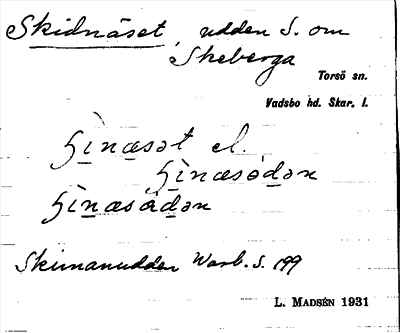 Skidnäset, udden S. om
Skeberga
Torsö sn.
Vadsbo hd. Skar. l.
ʃìnæsət el.
ʃìnæsódən
ʃìnæsådən
Skimanudden Warb. S. 199
L. MADSÉN 1931